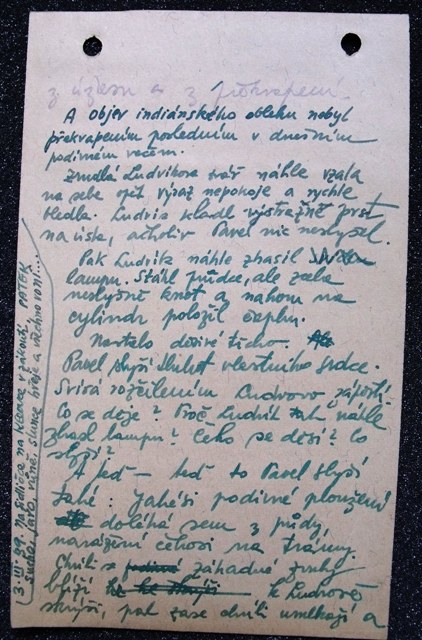 z úžasu a z překvapení.
A objev indiánského obleku nebyl
překvapením posledním v dnešním
podivném večeru.
Zrudlá Ludvíkova tvář náhle vzala
na sebe opět výraz nepokoje a rychle
bledla. Ludvík kladl výstražně prst
na ústa, ačkoliv Pavel nic nemluvil.
Pak Ludvík náhle zhasil
lampu. Stáhl prudce, ale zcela
neslyšně knot a nahoru na
cylindr položil čepku.
Nastalo děsivé ticho.
Pavel slyší tlukot vlastního srdce.
Svírá rozčílením Ludvovo zápěstí.
Co se děje? Proč Ludvík tak náhle
zhasl lampu? Čeho se děsí? Co
slyší?
A teď — teď to Pavel slyší
také: Jakési podivné ploužení
doléhá sem z půdy,
narážení čehosi na trámy.
Chvíli se záhadné zvuky
blíží k Ludvově
skrýši, pak zase chvíli umlkají a
3. III. 39. Na sedličce na Kišorce v zákoutí, PÁTEK
sucho, jaro, vůně, slunce hřeje a všechno voní...